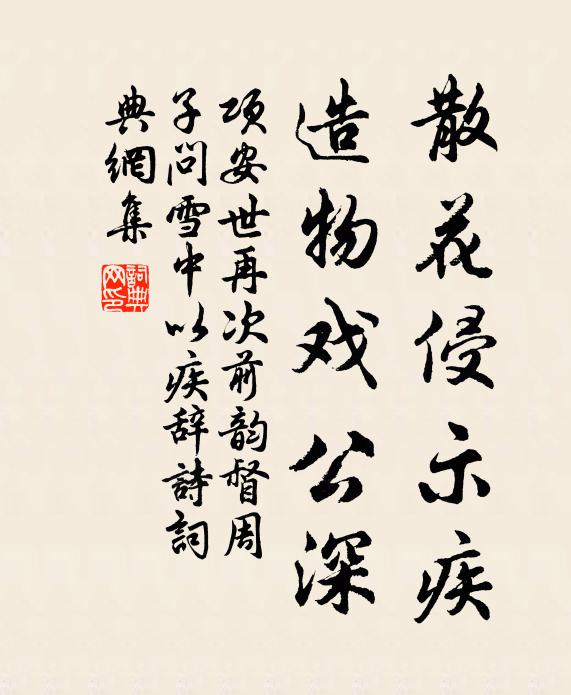 散花侵示疾
造物戏公深
项安世再次前韵督周
子问雪中以疾辞詩詞
典網集
詞典网印